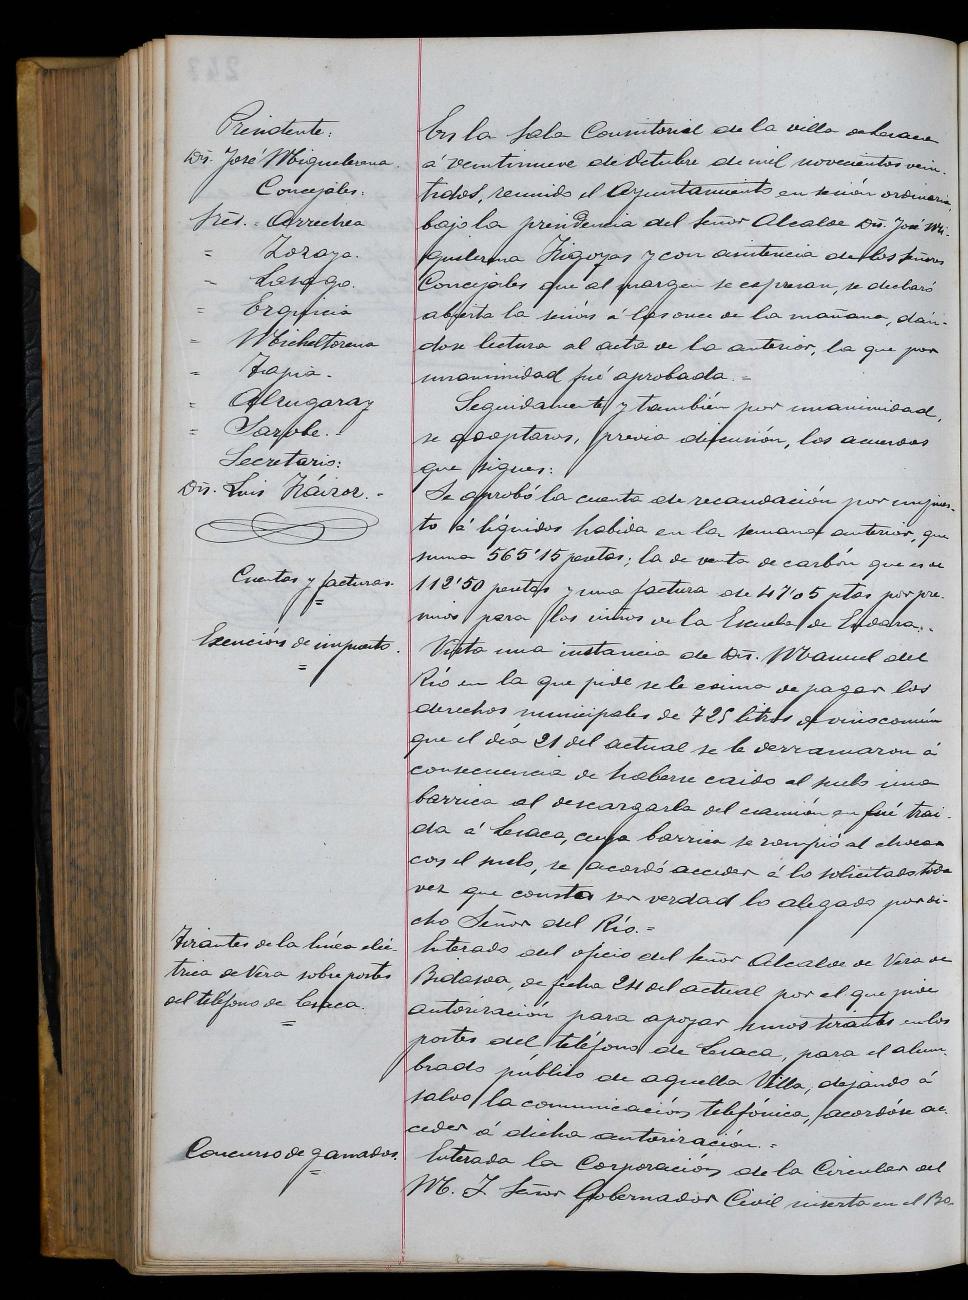 Presidente:
Dn. José Miguelerena.
Concejales:
Sres. Arrechea
= Zoraya.
= Lasaga.
= Erquicia
= Micheltorena
= Tapia.
= Alzugaray
= Sarobe.=
Secretario:
Dn. Luis
En la Sala Consistorial de la villa de Lesaca
á veintinueve de Octubre de mil novecientos vein-
tidos, reunido el Ayuntamiento en sesión ordinaria,
bajo la presidencia del Señor Alcalde Dn. José Mi-
guelerena Yrigoyen y con asistencia de los señores
Concejales que al margen se expresan, se declaró
abierta la sesión á las once de la mañana, dán-
dose lectura al acta de la anterior, la que por
unanimidad fué aprobada.=
Seguidamente y también por unanimidad,
se adoptaron, previa discusión, los acuerdos
que siguen:
Cuentas y facturas.
=
Se aprobó la cuenta de recaudación por impues-
to á líquidos habida en la semana anterior, que
suma 565'15 pesetas; la de venta de carbón que es de
112'50 pesetas y una factura de 47'05 ptas por pre-
mios para los niños de la Escuela de Endara.
Exención de impuesto.
=
Vista una instancia de Dn. Manuel del
Río en la que pide se le exima de pagar los
derechos municipales de 725 litros de vino común
que el día 21 del actual se le derramaron á
consecuencia de haberse caido al suelo una
barrica al descargarla del camión en fué trai-
da á Lesaca, cuya barrica se rompió al chocar
con el suelo, se acordó acceder á lo solicitado toda
vez que consta ser verdad lo alegado por di-
cho Señor del Río.=
Tirantes de la línea eléc-
trica de Vera sobre postes
del teléfono de Lesaca.
=
Enterados del oficio del Señor Alcalde de Vera de
Bidasoa, de fecha 24 del actual por el que pide
autorización para apoyar unos tirantes en los
postes del teléfono de Lesaca, para el alum-
brado público de aquella Villa, dejando á
salvo la comunicación telefónica, acordóse ac-
ceder á dicha autorización.=
Concurso de ganados.
=
Enterada la Corporación de la Circular del
M. I. Señor Gobernador Civil inserta en el Bo-